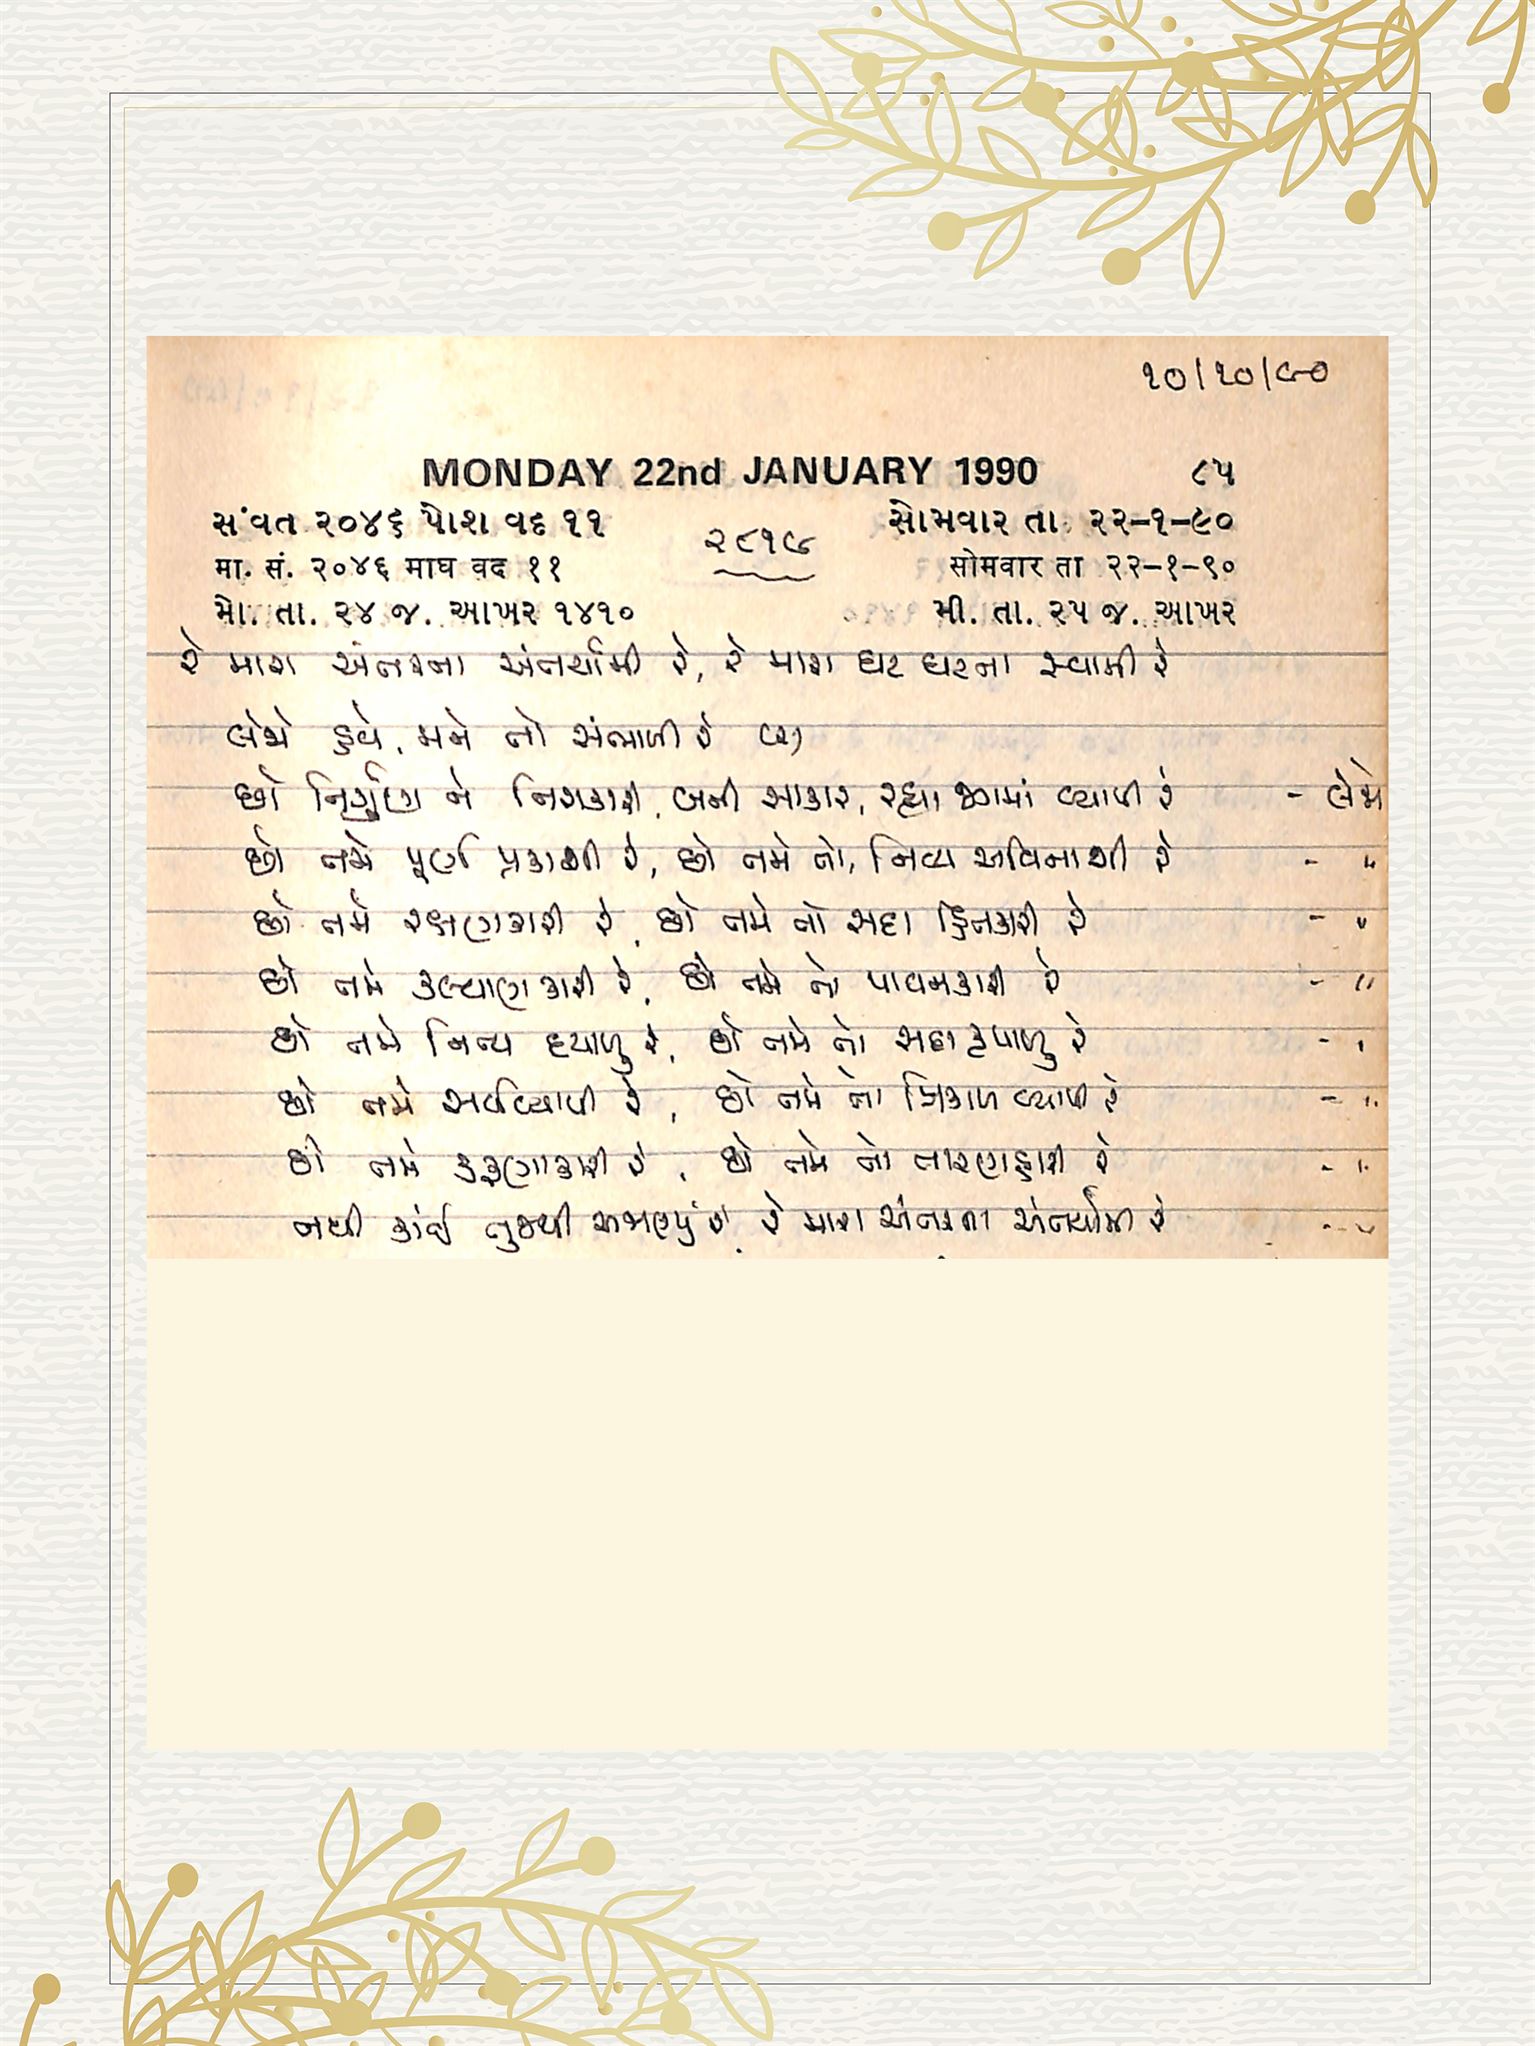 ૧૦/૧૦/૯૦
MONDAY 22nd JANUARY 1990 ૮૫
સંવત ૨૦૪૬ પોશ વદ ૧૧ સોમવાર તા. ૨૨-૧-૯૦
૨૮૧૯
मा. सं. २०४६ माघ वद ११ सोमवार ता २२-१-९०
મો. તા. ૨૪ જ. આખર ૧૪૧૦ મી. તા. ૨૫ જ. આખર
રે મારા અંતરના અંતર્યામી રે, રે મારા ઘટ ઘટના સ્વામી રે
લેજો હવે, મને તો સંભાળી રે (૨)
છો નિર્ગુણ ને નિરાકારી, બની સાકાર, રહ્યા જગમાં વ્યાપી રે - લેજો
છો તમે પૂર્ણ પ્રકાશી રે, છો તમે તો, નિત્ય અવિનાશી રે - "
છો તમે રક્ષણકારી રે, છો તમે તો સદા હિતકારી રે - "
છો તમે કલ્યાણકારી રે, છો તમે તો પાવનકારી રે - "
છો તમે નિત્ય દયાળુ રે, છો તમે તો સદા કૃપાળુ રે - "
છો તમે સર્વવ્યાપી રે, છો તમે તો ત્રિકાળ વ્યાપી રે - "
છો તમે કરુણાકારી રે, છો તમે તો તારણહારી રે - "
નથી કાંઈ તુજથી અજાણ્યું રે, રે મારા અંતરના અંતર્યામી રે - "